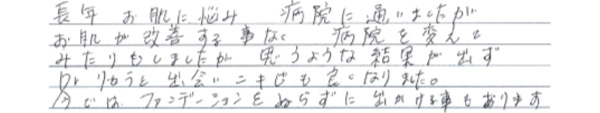 長年 お肌に悩み 病院に通いましたが
お肌が改善する事なく 病院を変えて
みたりもしましたが 思うような結果が出ず
Dr.リセラと出会いニキビも良くなりました。
今では ファンデーションをぬらずに出かける事もあります